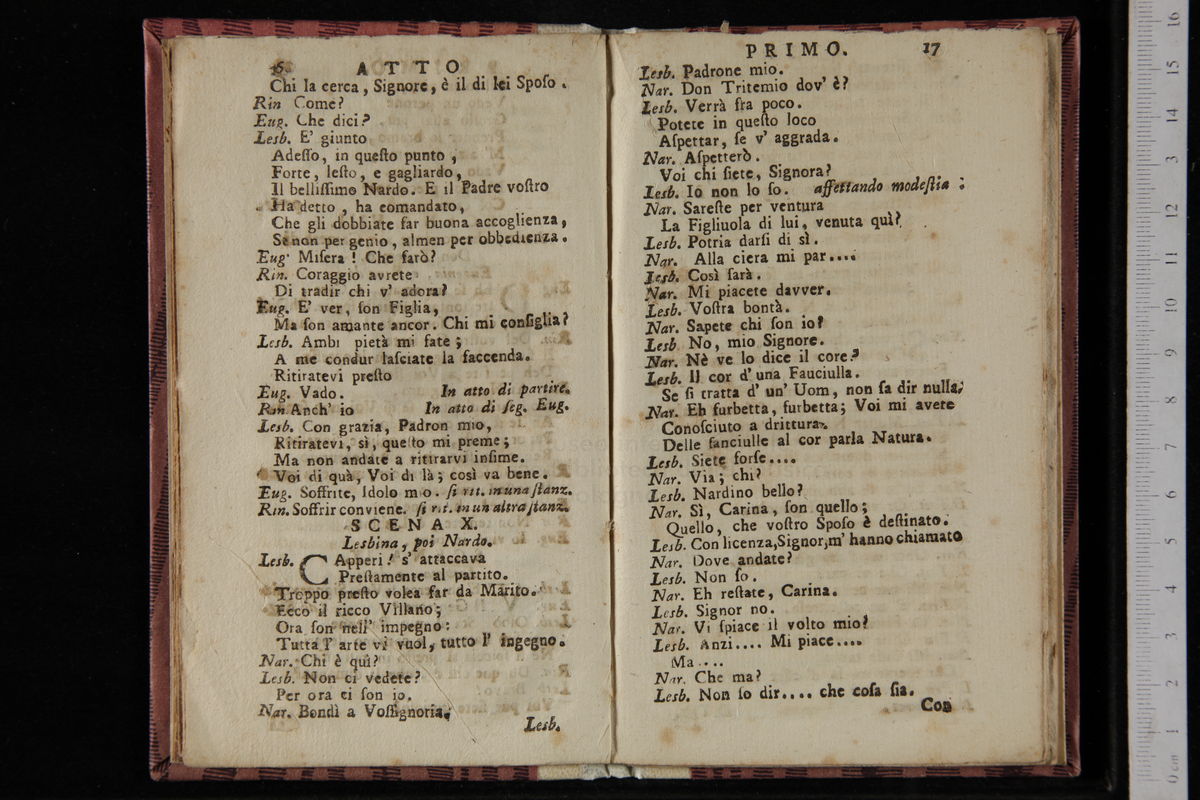 16 ATTO
Chi la cerca, Signore, è il di lei Spoſo.
Rin Come?
Eug. Che dici?
Lesb. E' giunto
Adeſſo, in queſto punto,
Forte, leſto, e gagliardo,
Il belliſſimo Nardo. E il Padre voſtro
Ha detto, ha comandato,
Che gli dobbiate far buona accoglienza,
Se non per genio, almen per obbedienza.
Eug' Miſera! Che farò?
Rin. Coraggio avrete
Di tradir chi v' adora?
Eug. E' ver, ſon Figlia,
Ma ſon amante ancor. Chi mi conſiglia?
Lesb. Ambi pietà mi fate;
A me condur laſciate la faccenda.
Ritiratevi preſto
Eug. Vado. In atto di partire.
Rin Anch' io In atto di ſeg. Eug.
Lesb. Con grazia, Padron mio,
Ritiratevi, sì, queſto mi preme;
Ma non andate a ritirarvi inſime.
Voi di quà, Voi di là; così va bene.
Eug. Soffrite, Idolo mio. ſi rit. in una ſtanz.
Rin. Soffrir conviene. ſi rit. in un altra ſtanz.
SCENA X.
Lesbina, poi Nardo.
Lesb. CApperi! s' attaccava
Preſtamente al partito.
Troppo preſto volea far da Marito.
Ecco il ricco Villano;
Ora ſon nell' impegno:
Tutta l' arte vi vuol, tutto l' ingegno.
Nar. Chi è quì?
Lesb. Non ci vedete?
Per ora ci ſon io.
Nar. Bondì a Voſſignoria.
Lesb.
PRIMO. 17
Lesb. Padrone mio.
Nar. Don Tritemio dov' è?
Lesb. Verrà fra poco.
Potete in queſto loco
Aſpettar, ſe v' aggrada.
Nar. Aſpetterò.
Voi chi ſiete, Signora?
Lesb. Io non lo ſo. affettando modeſtia.
Nar. Sareſte per ventura
La Figliuola di lui, venuta quì?
Lesb. Potria darſi di sì.
Nar. Alla ciera mi par....
Lesb. Così farà.
Nar. Mi piacete davver.
Lesb. Voſtra bontà.
Nar. Sapete chi ſon io?
Lesb No, mio Signore.
Nar. Nè ve lo dice il core?
Lesb. Il cor d' una Fauciulla.
Se ſi tratta d' un' Uom, non ſa dir nulla.
Nar. Eh furbetta, furbetta; Voi mi avete
Conoſciuto a drittura.
Delle fanciulle al cor parla Natura.
Lesb. Siete forſe....
Nar. Via; chi?
Lesb. Nardino bello?
Nar. Sì, Carina, ſon quello;
Quello, che voſtro Spoſo è deſtinato.
Lesb. Con licenza, Signor, m' hanno chiamato
Nar. Dove andate?
Lesb. Non ſo.
Nar. Eh reſtate, Carina.
Lesb. Signor no.
Nar. Vi ſpiace il volto mio?
Lesb. Anzi.... Mi piace....
Ma....
Nar. Che ma?
Lesb. Non ſo dir.... che coſa ſia.
Con